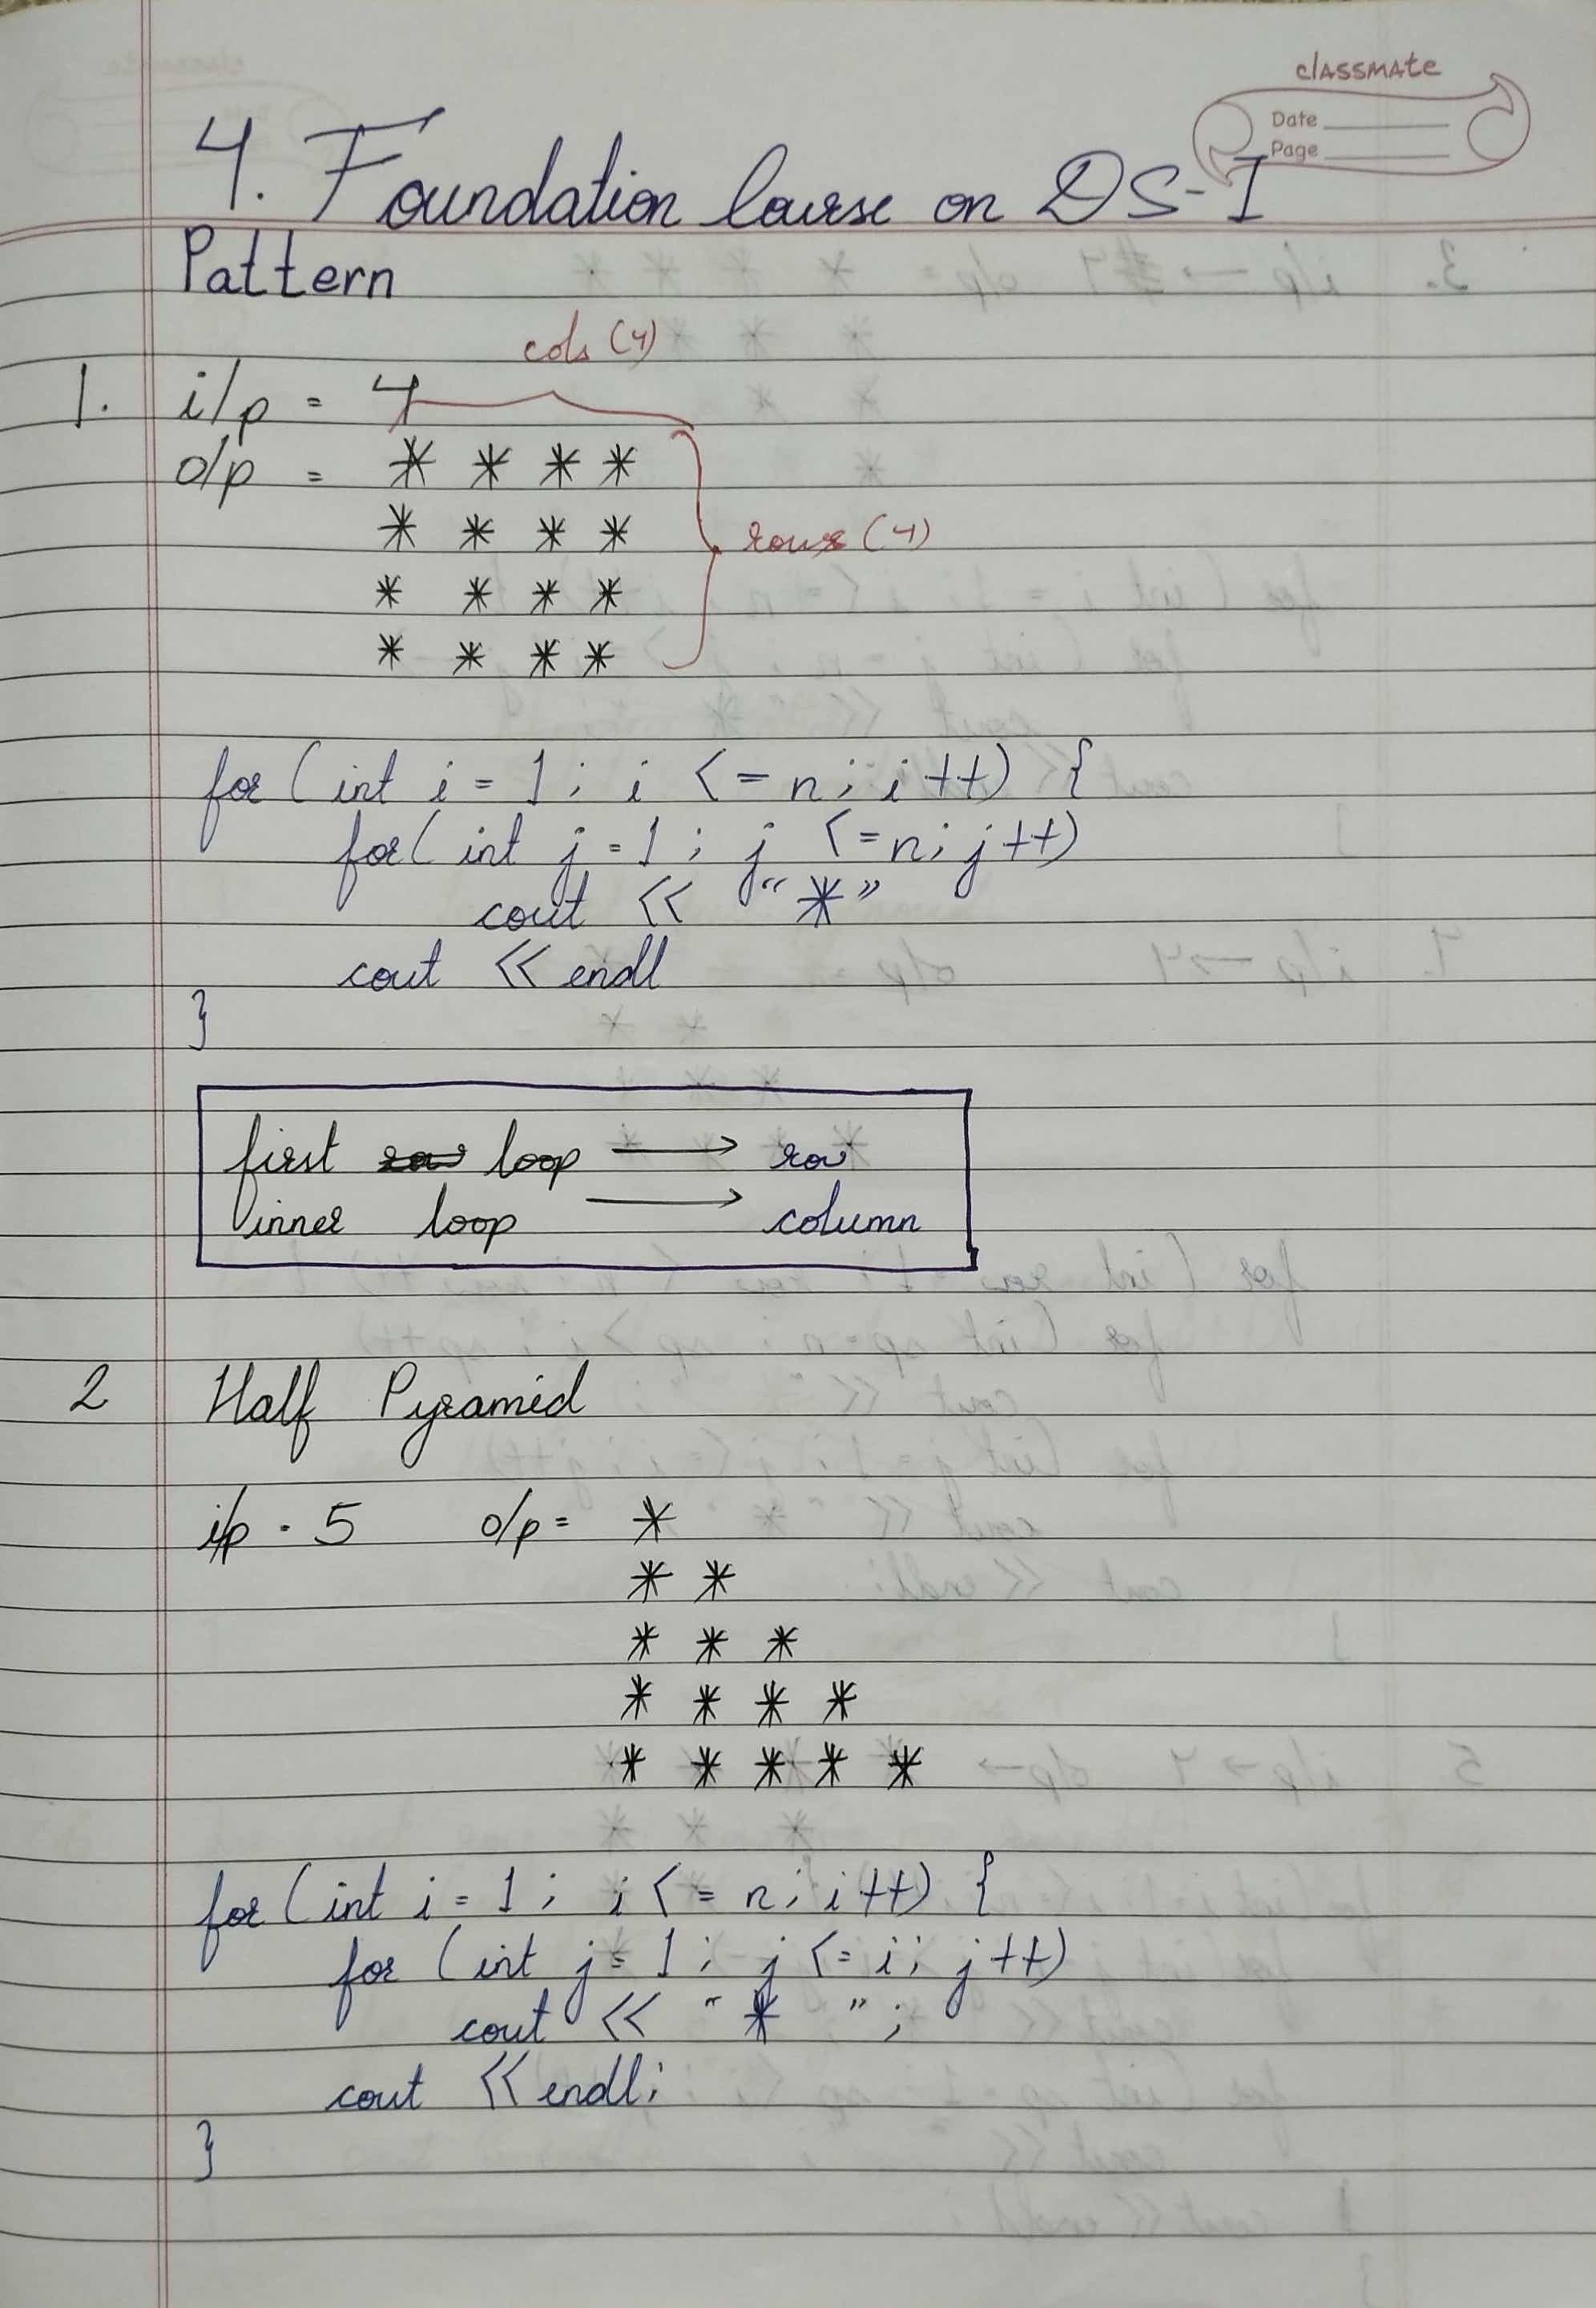 classmate
Date
Page
4. Foundation Course on DS-I
Pattern
cols (4)
1. i/p = 4
o/p = * * * *
* * * *
rows (4)
* * * *
* * * *
for (int i = 1; i <= n; i++) {
for (int j = 1; j <= n; j++)
cout << "*"
cout << endl
}
first loop → row
inner loop → column
2 Half Pyramid
i/p = 5 o/p = *
* *
* * *
* * * *
* * * * *
for (int i = 1; i <= n; i++) {
for (int j = 1; j <= i; j++)
cout << " * ";
cout << endl;
}